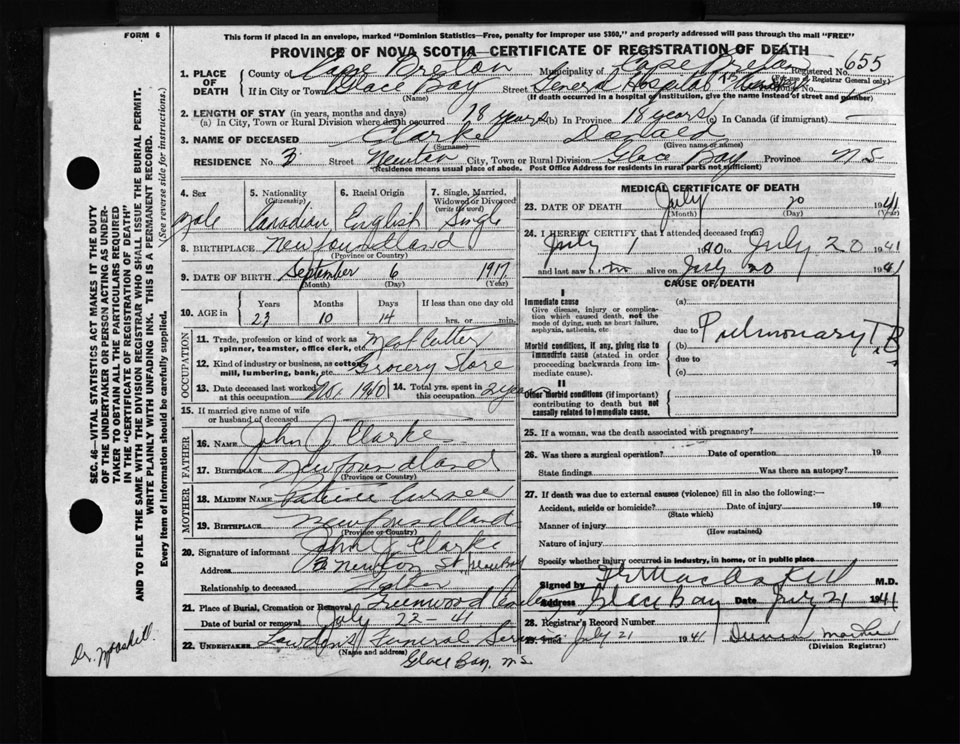 FORM 6
This form if placed in an envelope, marked "Dominion Statistics–Free, penalty for improper use $300," and properly addressed will pass through the mail "FREE"
PROVINCE OF NOVA SCOTIA—CERTIFICATE OF REGISTRATION OF DEATH
1. PLACE OF DEATH County of Cape Breton Municipality of Cape Breton Registered No. 655
(For use of Registrar General only)
If in City or Town Glace Bay (Name) Street General Hospital
(If death occurred in a hospital of institution, give the name instead of street and number)
2. LENGTH OF STAY (in years, months and days)
(a) In City, Town or Rural Division where death occurred 18 years (b) In Province 18 years (c) In Canada (if immigrant) —
3. NAME OF DECEASED Clarke (Surname) Donald (Given name or names)
RESIDENCE No. 3 Street Newton City, Town or Rural Division Glace Bay Province N S
(Residence means usual place of abode. Post Office Address for residents in rural parts not sufficient)
4. Sex Male
5. Nationality (Citizenship) Canadian
6. Racial Origin English
7. Single, Married, Widowed or Divorced (write the word) Single
8. BIRTHPLACE Newfoundland
(Province or Country)
9. DATE OF BIRTH September 6 1917
(Month) (Day) (Year)
10. AGE in Years Months Days If less than one day old
23 10 14 hrs. or min.
OCCUPATION
11. Trade, profession or kind of work as spinner, teamster, office clerk, etc. Meat Cutter
12. Kind of industry or business, as cotton mill, lumbering, bank, etc. Grocery Store
13. Date deceased last worked at this occupation Nov. 1940 14. Total yrs. spent in this occupation 2 years
15. If married give name of wife or husband of deceased
FATHER
16. NAME John J. Clarke
17. BIRTHPLACE Newfoundland
(Province or Country)
MOTHER
18. MAIDEN NAME
19. BIRTHPLACE Newfoundland
(Province or Country)
20. Signature of informant John J. Clarke
Address 3 Newton St Glace Bay
Relationship to deceased Father
21. Place of Burial, Cremation or Removal Greenwood
Date of burial or removal July 22 – 41
22. UNDERTAKER Funeral Service
(Name and address)
Glace Bay, N.S.
MEDICAL CERTIFICATE OF DEATH
23. DATE OF DEATH July 20 1941
(Month) (Day) (Year)
24. I HEREBY CERTIFY that I attended deceased from:
July 1 1940 to July 20 1941
and last saw him alive on July 20 1941
CAUSE OF DEATH
I
Immediate cause
Give disease, injury or complication which caused death, not the mode of dying, such as heart failure, asphyxia, asthenia, etc
(a)
due to
Morbid conditions, if any, giving rise to immediate cause (stated in order proceeding backwards from immediate cause).
(b) Pulmonary T.B.
due to
(c)
II
Other morbid conditions (if important) contributing to death but not causally related to immediate cause.
25. If a woman, was the death associated with pregnancy?
26. Was there a surgical operation? Date of operation 19
State findings Was there an autopsy?
27. If death was due to external causes (violence) fill in also the following:—
Accident, suicide or homicide? Date of injury 19
(State which)
Manner of injury
(How sustained)
Nature of injury
Specify whether injury occurred in industry, in home, or in public place
Signed by M.D.
Address Glace Bay Date July 21 1941
28. Registrar's Record Number
29. Filed July 21 1941
(Division Registrar)
SEC. 46—VITAL STATISTICS ACT MAKES IT THE DUTY
OF THE UNDERTAKER OR PERSON ACTING AS UNDER-
TAKER TO OBTAIN ALL THE PARTICULARS REQUIRED
IN THE "CERTIFICATE OF REGISTRATION OF DEATH"
AND TO FILE THE SAME WITH THE DIVISION REGISTRAR WHO SHALL ISSUE THE BURIAL PERMIT.
WRITE PLAINLY WITH UNFADING INK. THIS IS A PERMANENT RECORD.
Every item of Information should be carefully supplied. (See reverse side for instructions.)
Dr.